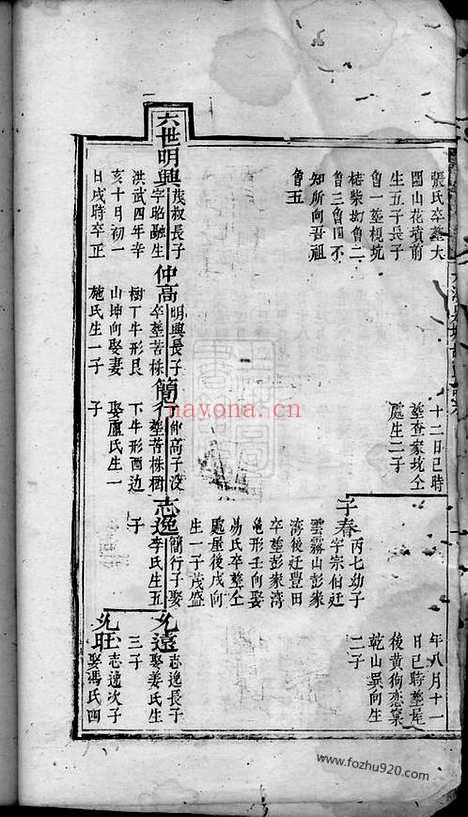 張氏卒塟大
圍山花墳前
生五子長子
魯一塟梘坑
楮柴坳魯二
魯三魯四不
知所向吾祖
魯五
十二日巳時
塟查家坑仝
處生二子
年八月十一
日巳時塟屋
後黃狗戀窠
乾山巽向生
二子
子春
丙七幼子
字宗伯迁
雲霧山彭家
湾後迁豐田
卒塟彭家湾
龟形壬向娶
易氏卒塟仝
處屋後戌向
生一子茂盛
六世明興
茂叔長子
字昭融生
洪武四年辛
亥十月初一
日戌時卒正
仲高
明興長子
卒塟苦株
樹丁牛形艮
山坤向娶妻
施氏生一子
簡行
仲高子没
塟苦株樹
下牛形酉邊
娶盧氏生一
子
志逸
簡行子娶
李氏生五
子
允遠
志逸長子
娶姜氏生
三子
允旺
志逸次子
娶馮氏四
nayona.cn
www.fozhu920.com